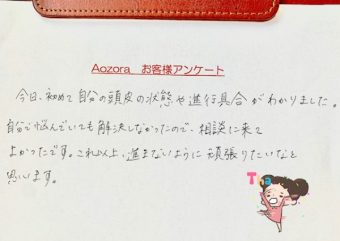 Aozora お客様アンケート
今日、初めて自分の頭皮の状態や進行具合がわかりました。
自分で悩んでいても解決しなかったので、相談に来て
よかったです。これ以上、進まないように頑張りたいなと
思います。